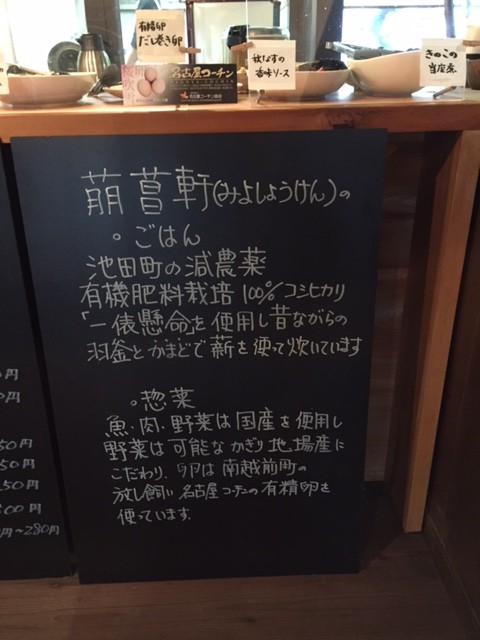 有精卵
だし巻き卵
名古屋コーチン
秋なすの
香味ソース
きのこの
当座煮
萠菖軒(みよしょうけん)の
。ごはん
池田町の減農薬
有機肥料栽培100%コシヒカリ
「一俵懸命」を使用し昔ながらの
羽釜とかまどで薪を使って炊いています
。惣菜
魚・肉・野菜は国産を使用し
野菜は可能なかぎり地場産に
こだわり、卵は南越前町の
放し飼い名古屋コーチンの有精卵を
使っています。
円
円
50円
50円
150円
600円
円~280円